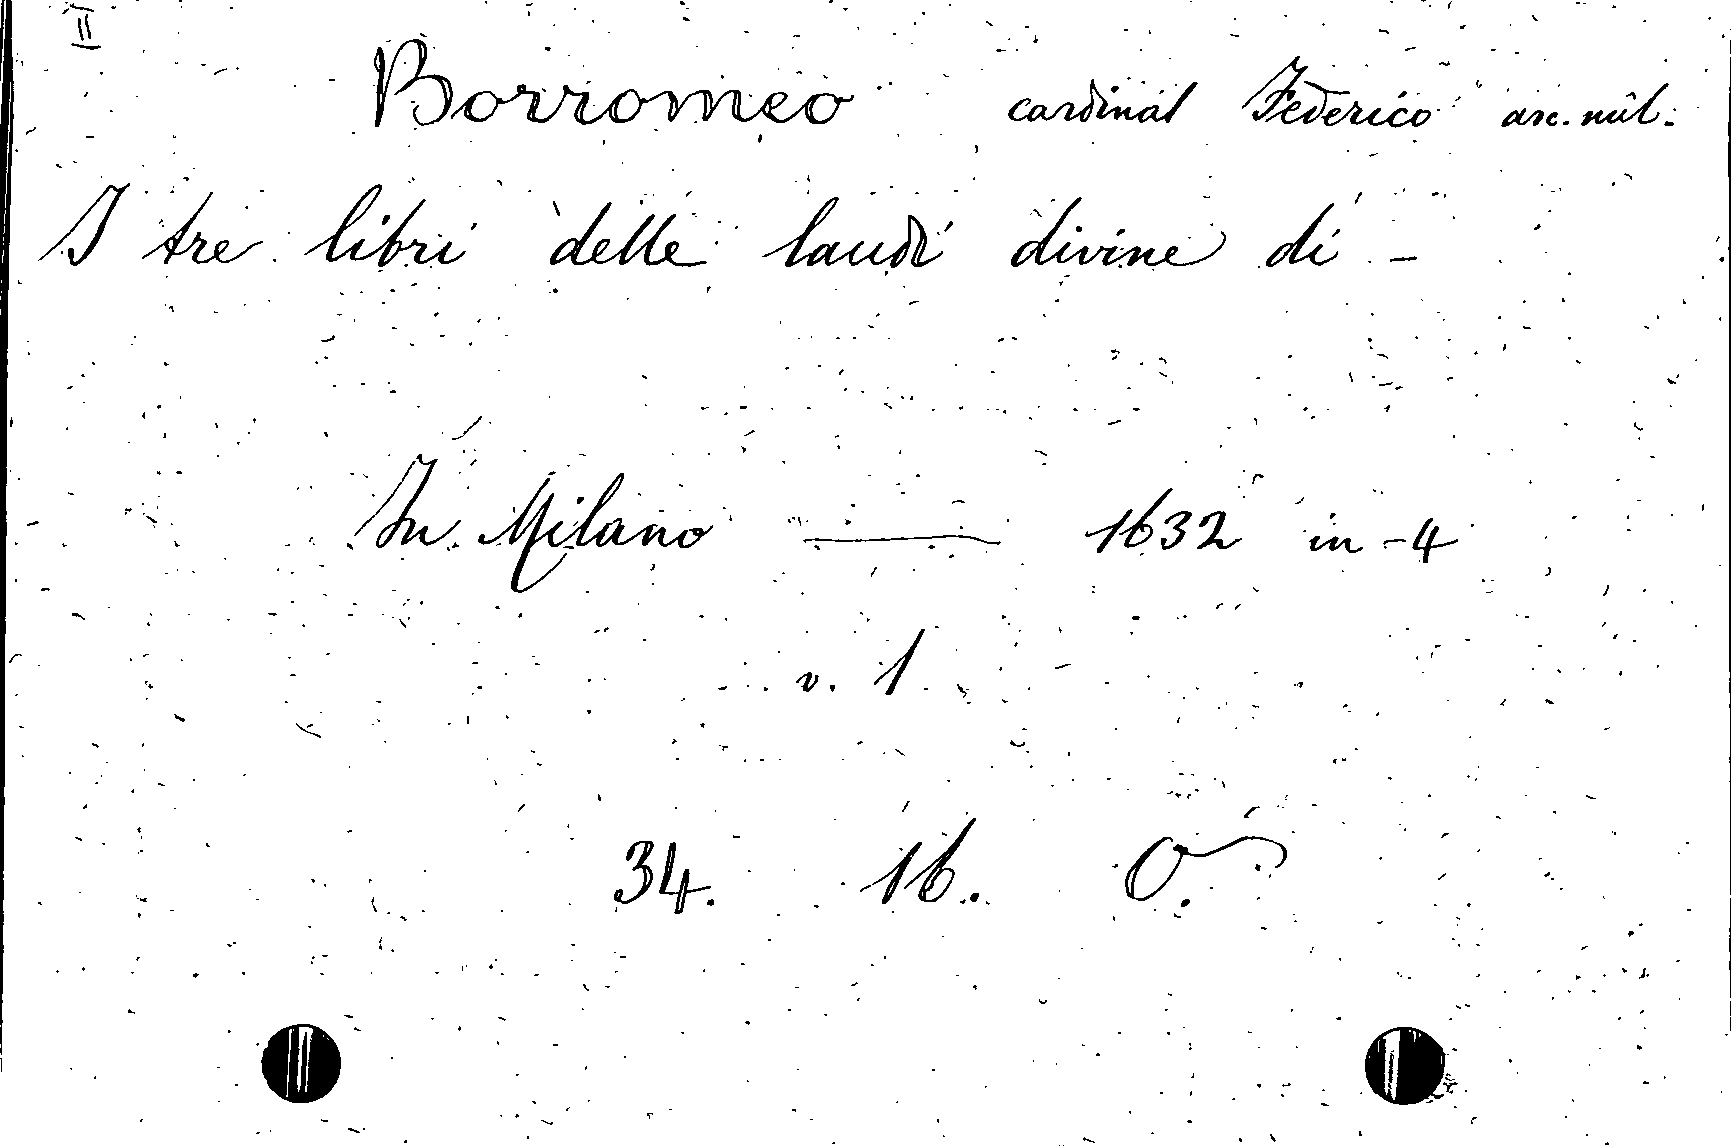 Borromeo cardinal Federico arc. mil.
I tre libri delle laudi divine di -
In Milano — 1632 in-4
v. 1
34. 16. O.